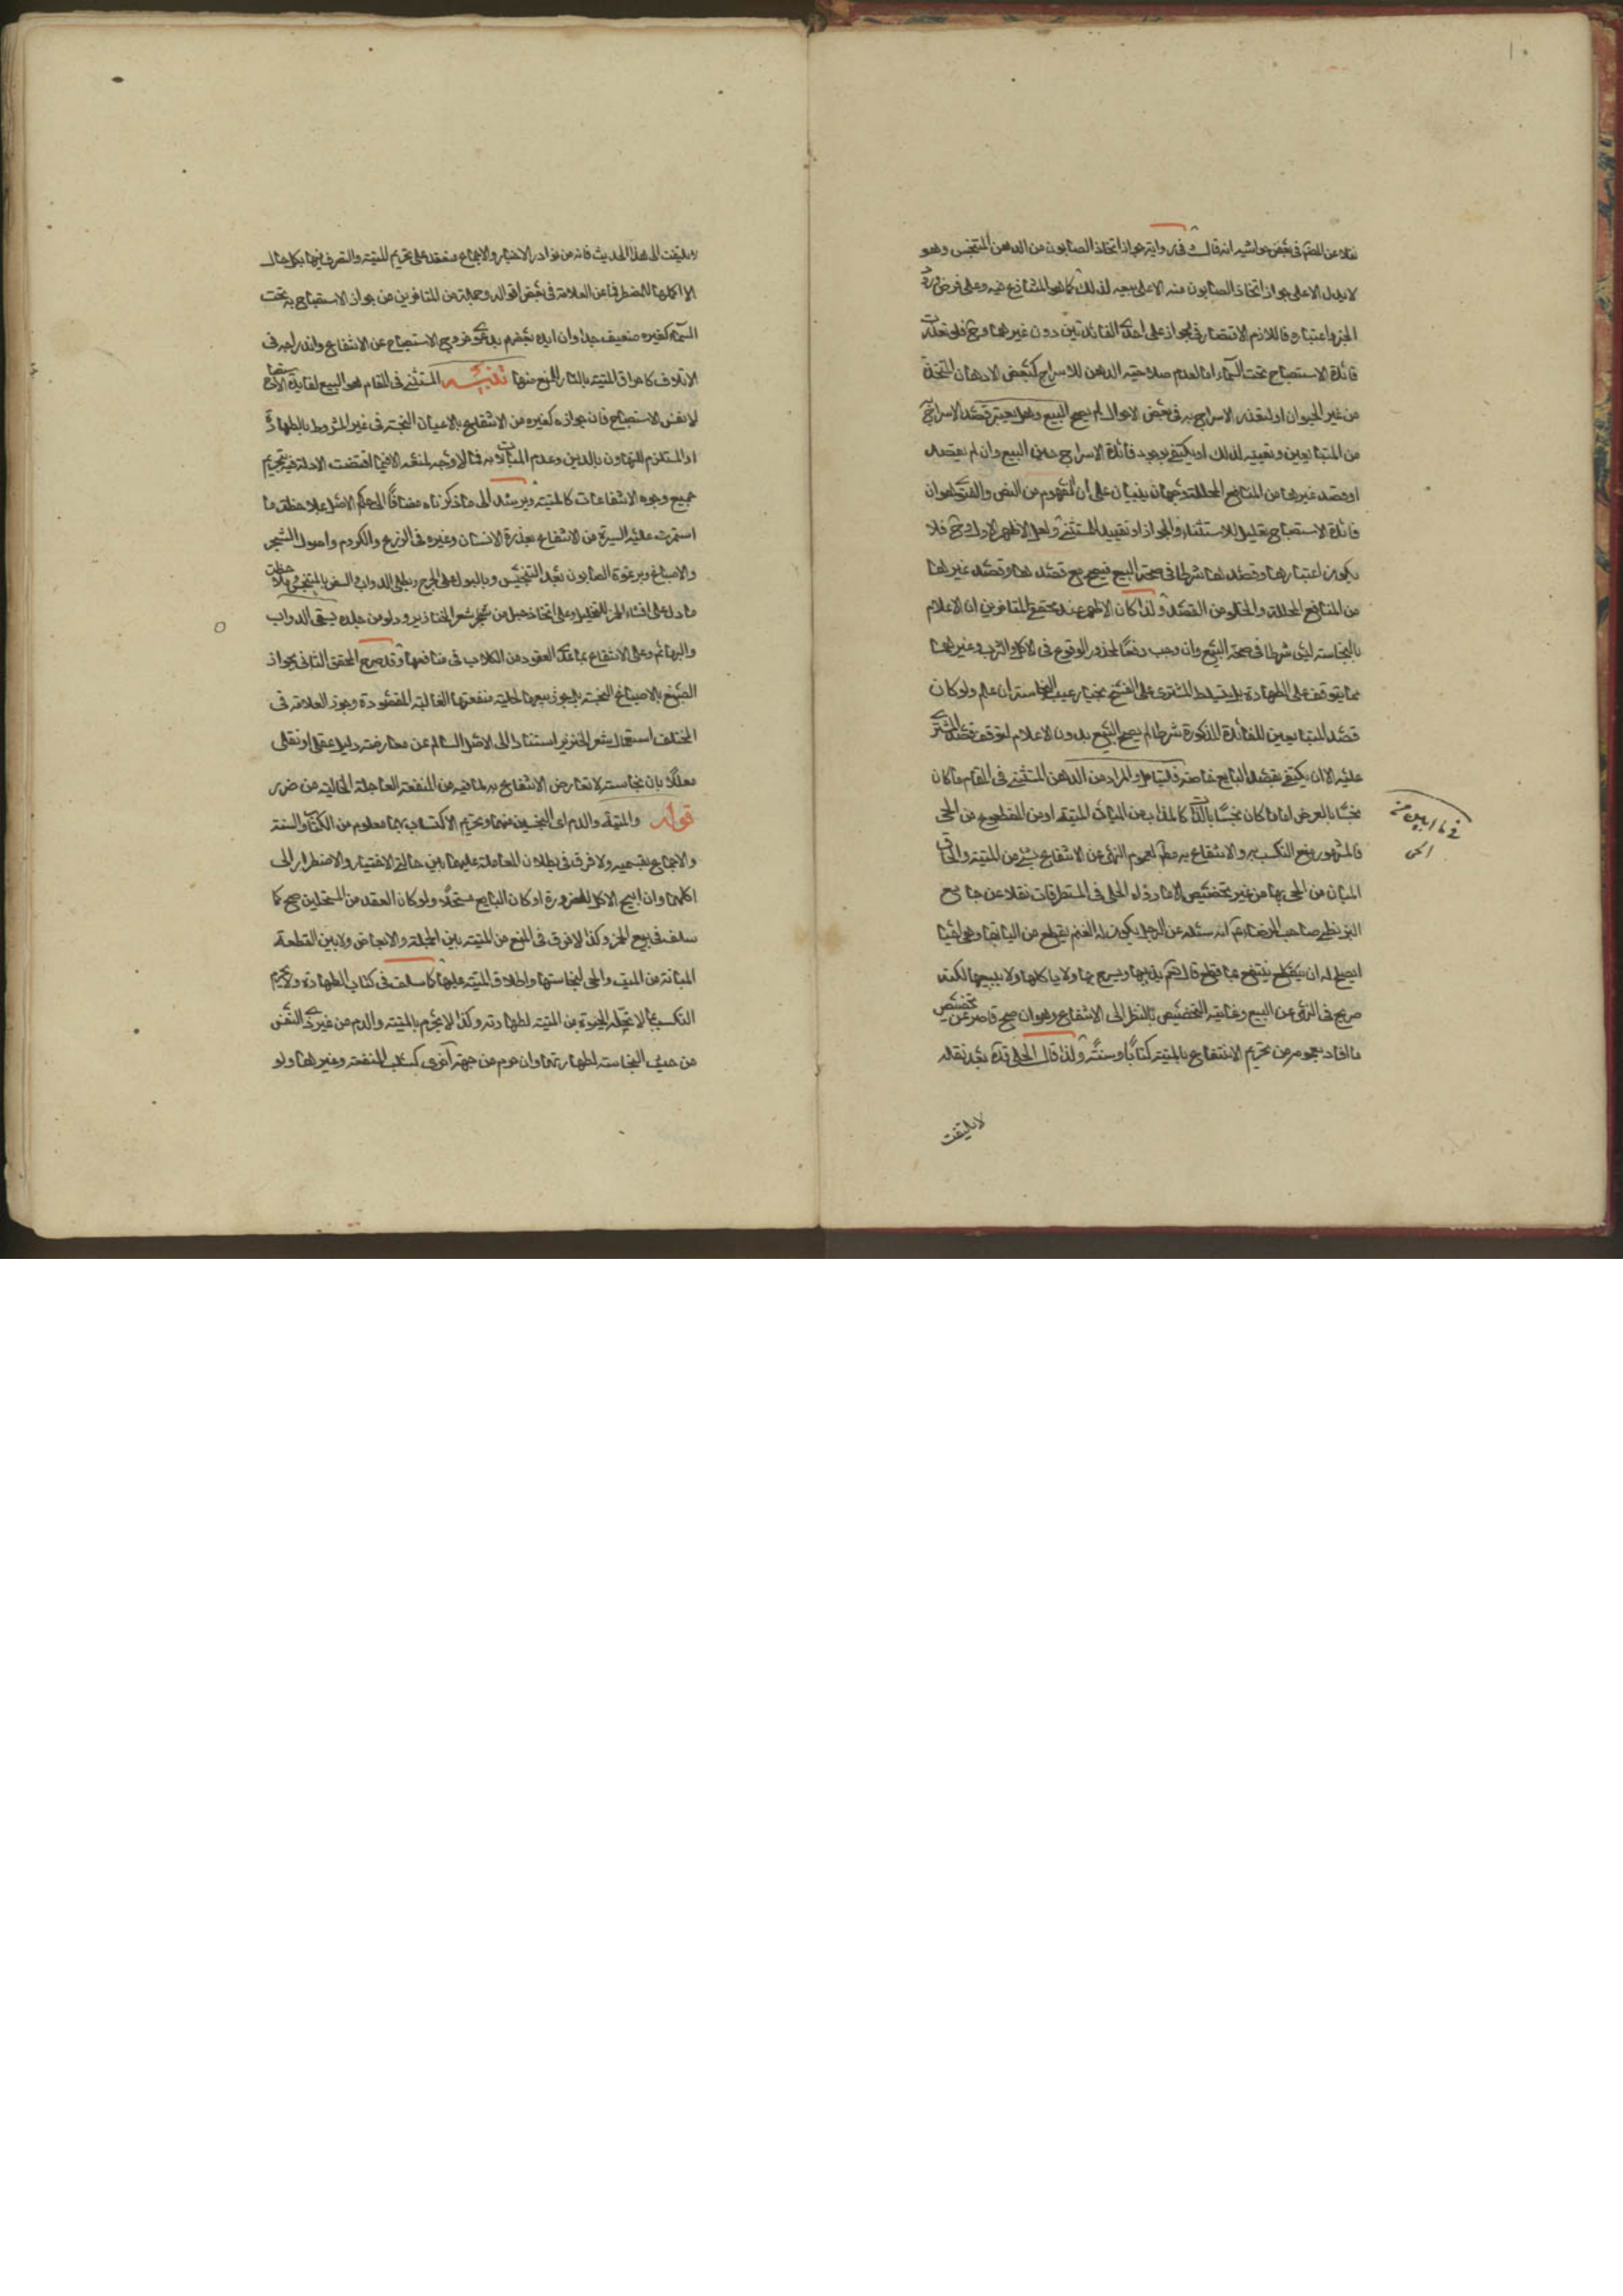 نقلا عن المصنف في بعض حواشيه انه قال في رواية جواز اتخاذ الصابون من الدهن المتنجس وهو
لا يدل الا على جواز اتخاذ الصابون منه لا على بيعه لذلك كما هو المتنازع فيه وعلى فرض
الخبر واعتباره فاللازم الاقتصار في الجواز على احدى الفائدتين دون غيرهما وح فلو تعذرت
فائدة الاستصباح تحت السماء اما لعدم صلاحية الدهن للاسراج كبعض الادهان المتخذة
من غير الحيوان او لتعذر الاسراج به في بعض الاحوال لم يصح البيع وهل يعتبر قصد الاسراج
من المتبايعين وتعيينه لذلك او يكتفى بوجود فائدة الاسراج حين البيع وان لم يقصد
او قصد غيرها من المنافع المحللة وجهان يبنيان على ان المفهوم من النص والفتوى هو ان
فائدة الاستصباح تعليل للاستثناء والجواز او تقييد المستثنى ولعل الاظهر الاول وح فلا
يكون اعتبارها وقصدها شرطا في صحة البيع فيصح مع قصدها وقصد غيرها
من المنافع المحللة والخلو من القصد ولذا كان الاظهر عند محققي المتاخرين ان الاعلام
بالنجاسة ليس شرطا في صحة البيع وان وجب دفعا لمحذور الوقوع في الاكل والشرب وغيرهما
مما يتوقف على الطهارة بل يتسلط المشتري على الفسخ بخيار عيب النجاسة ان علم ولو كان
قصد المتبايعين للفائدة المذكورة شرطا لم يصح البيع بدون الاعلام لتوقف قصد المشتري
عليه الا ان يكتفى بقصد البايع خاصة فليتامل والمراد من الدهن المستثنى في المقام ما كان
نجسا بالعرض اما ما كان نجسا بالذات كالمذاب من اليات الميتة او من المقطوع من الحي
فالمشهور منع التكسب به والانتفاع به معا لعموم النهي عن الانتفاع بشئ من الميتة والحاق
المبان من الحي بها من غير تخصيص الا ما رواه الحلي في المستطرفات نقلا عن جامع
البزنطي صاحب الرضا ع انه سئله عن الرجل يكون له الغنم يقطع من الياتها وهي احيا
ايصلح له ان ينتفع بما قطع قال نعم يذيبها ويسرج بها ولا ياكلها ولا يبيعها لكنه
صريح في النهي عن البيع وغايته التخصيص بالنظر الى الانتفاع وهو ان صح قاصر عن تخصيص
ما افاد بعمومه من تحريم الانتفاع بالميتة كتابا وسنة ولذا قال الحلي قده بعد نقله
لا يلتفت
لا يلتفت الى هذا الحديث فانه من نوادر الاخبار والاجماع منعقد على تحريم الميتة والتصرف فيها بكل حال
الا اكلها للمضطر فما عن العلامة في بعض اقواله وجملة من المتاخرين من جواز الاستصباح به تحت
السماء كغيره ضعيف جدا وان ايده بعضهم بدعوى خروج الاستصباح عن الانتفاع واندراجه في
الاتلاف كاحراق الميتة بالنار للمنع منها تنبيه المستثنى في المقام هو البيع لفايدة الاستصباح
لا نفس الاستصباح فان جوازه كغيره من الانتفاع بالاعيان النجسة في غير المشروط بالطهارة
او المستلزم للتهاون بالدين وعدم المبالاة به فالا وجه لمنعه الا فيما اقتضت الادلة فيه تحريم
جميع وجوه الانتفاعات كالميتة ويرشد الى ما ذكرناه مضافا الى حكم الاصل ملاحظة ما
استمرت عليه السيرة من الانتفاع بعذرة الانسان وغيره في الزرع والكروم واصول الشجر
والاصباغ وبرغوة الصابون بعد التنجيس وبالبول على الجرح وبطلي الدواب والسفن بالمتنجس وملاحظة
ما دل على افشاء الخمر للتخليل وعلى اتخاذ حبل من شعر الخنازير ودلو من جلده يسقى الدواب
والبهائم وعلى الانتفاع بما عدا العقور من الكلاب في منافعها وقد صرح المحقق الثاني بجواز
الصبغ بالاصباغ النجسة بل جوز بيعها لحلية منفعتها الغالبة المقصودة وجوز العلامة في
المختلف استعمال شعر الخنزير استنادا الى الاصل السالم عن معارضة دليل عقلي او نقلي
معللا بان نجاسته لا تعارض الانتفاع به لما فيه من المنفعة العاجلة الخالية من ضرر
قوله والميتة والدم اي النجسين منهما وتحريم الاكتساب بهما معلوم من الكتاب والسنة
والاجماع بقسميه ولا فرق في بطلان المعاملة عليهما بين حالتي الاختيار والاضطرار الى
اكلهما وان ابيح الاكل للضرورة او كان البايع مستحلا ولو كان العقد من المستحلين صح كما
سلف في بيع الخمر وكذا لا فرق في المنع من الميتة بين الجملة والابعاض ولا بين القطعة
المبانة من الميت والحي لنجاستها واطلاق الميتة عليها كما سلف في كتاب الطهارة ولا يحرم
التكسب بما لا تحله الحيوة من الميتة لطهارته وكذا لا يحرم بالميتة والدم من غير ذي النفس
من حيث النجاسة لطهارتهما وان حرم من جهة اخرى كسلب المنفعة وغيرها ولو